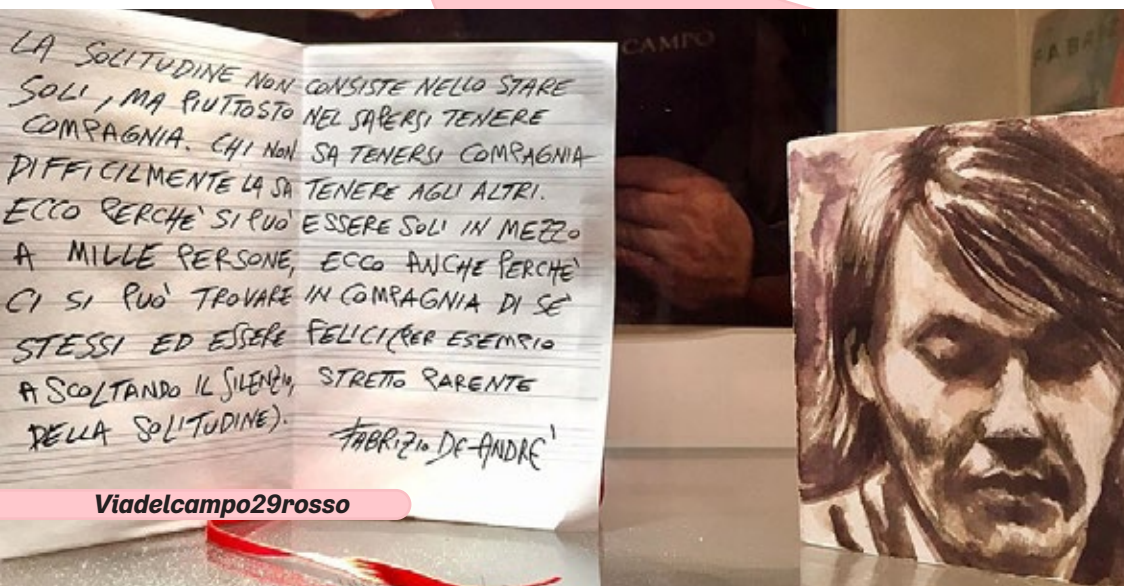 CAMPO
LA SOLITUDINE NON CONSISTE NELLO STARE
SOLI, MA PIUTTOSTO NEL SAPERSI TENERE
COMPAGNIA. CHI NON SA TENERSI COMPAGNIA
DIFFICILMENTE LA SA TENERE AGLI ALTRI.
ECCO PERCHÈ SI PUÒ ESSERE SOLI IN MEZZO
A MILLE PERSONE, ECCO ANCHE PERCHÈ
CI SI PUÒ TROVARE IN COMPAGNIA DI SÉ
STESSI ED ESSERE FELICI (PER ESEMPIO
ASCOLTANDO IL SILENZIO, STRETTO PARENTE
DELLA SOLITUDINE).
FABRIZIO DE ANDRÈ
Viadelcampo29rosso